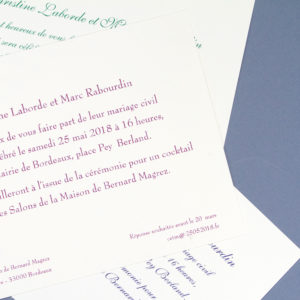 ristine Laborde et M
t heureux de vous
ra célé
ne Laborde et Marc Rabourdin
x de vous faire part de leur mariage civil
ébré le samedi 25 mai 2018 à 16 heures,
airie de Bordeaux, place Pey Berland.
illeront à l'issue de la cérémonie pour un cocktail
es Salons de la Maison de Bernard Magrez.
Réponse souhaitée avant le 20 mars
de Bernard Magrez
- 33000 Bordeaux
ourdin
iage civil
16 heures,
ey Berland.
monie pour
Bernard